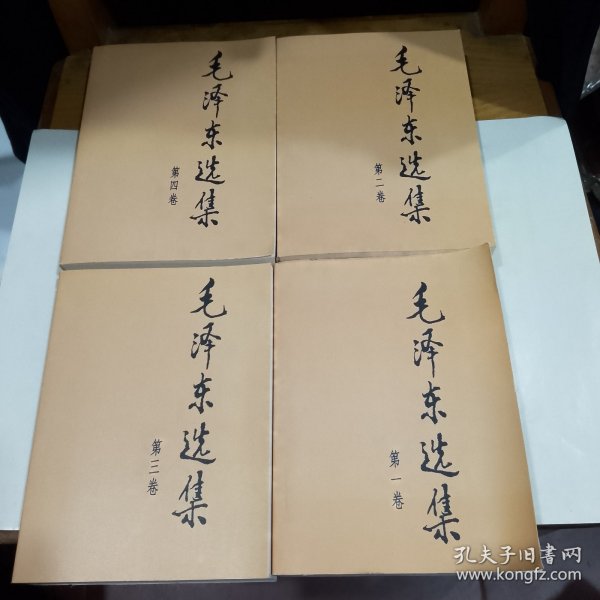 毛泽东选集
第四卷
毛泽东选集
第二卷
毛泽东选集
第三卷
毛泽东选集
第一卷
孔夫子旧书网
www.kongfz.com